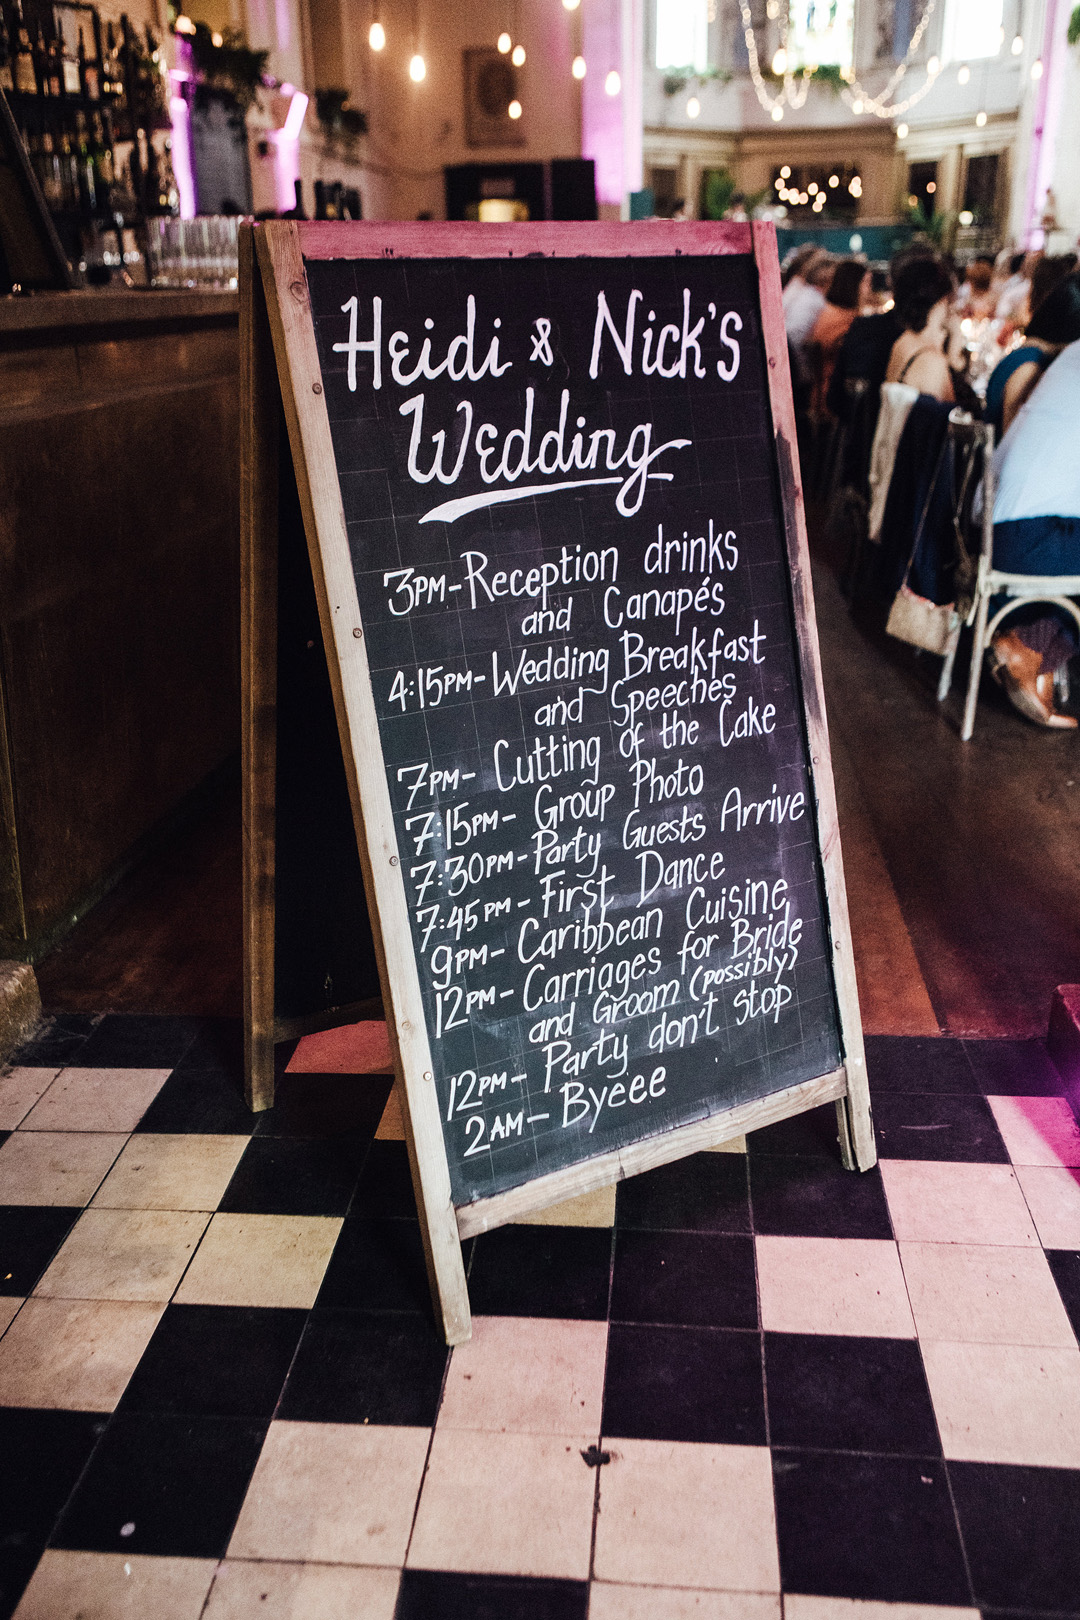 Heidi & Nick's
Wedding
3PM-Reception drinks
and Canapés
4:15PM-Wedding Breakfast
and Speeches
7PM- Cutting of the Cake
7:15PM- Group Photo
7:30PM-Party Guests Arrive
7:45PM- First Dance
9PM- Caribbean Cuisine
12PM- Carriages for Bride
and Groom (possibly)
12PM- Party don't stop
2AM- Byeee